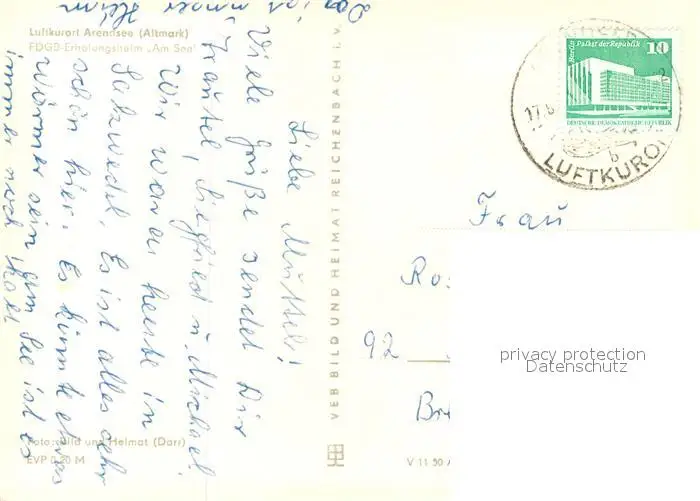 Luftkurort Arendsee (Altmark)
FDGB-Erholungsheim „Am See"
Liebe Mutter!
Viele Grüße sendet Dir
Siegfried u. Michael
Wir waren heute in
Salzwedel. Es ist alles sehr
schön hier. Es könnte etwas
wärmer sein, am See ist es
immer noch kalt
Das ist unser Heim
Foto: Bild und Heimat (Darr)
EVP 0,20 M
VEB BILD UND HEIMAT REICHENBACH i. V.
V 11 50
Berlin Palast der Republik
10
DEUTSCHE DEMOKRATISCHE REPUBLIK
17.6
b
LUFTKURO
Frau
Ro
92
privacy protection
Datenschutz